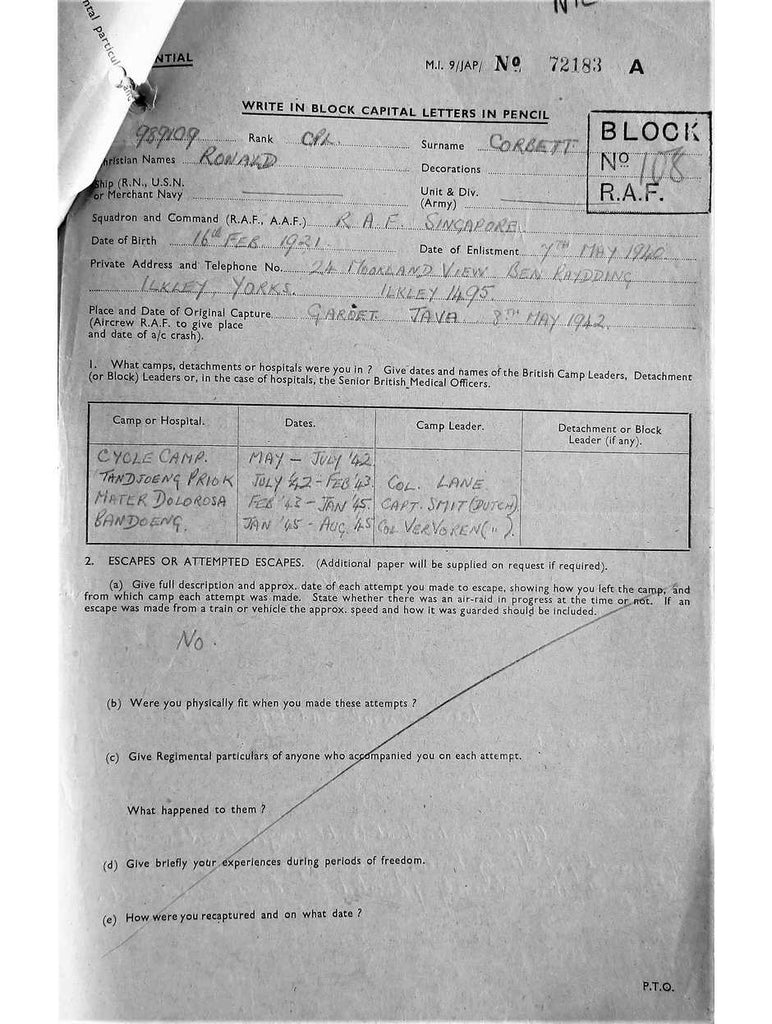 ntal particul
NTIAL
M.I. 9/JAP/ No 72183 A
WRITE IN BLOCK CAPITAL LETTERS IN PENCIL
BLOCK
No 108
R.A.F.
989109 Rank CPL. Surname CORBETT
Christian Names RONALD Decorations
Ship (R.N., U.S.N. or Merchant Navy Unit & Div. (Army)
Squadron and Command (R.A.F., A.A.F.) R.A.F. SINGAPORE.
Date of Birth 16th FEB 1921. Date of Enlistment 7TH MAY 1940
Private Address and Telephone No. 24 MOORLAND VIEW BEN RAYDDING
ILKLEY, YORKS. ILKLEY 1495.
Place and Date of Original Capture GAROET JAVA 8TH MAY 1942.
(Aircrew R.A.F. to give place
and date of a/c crash).
1. What camps, detachments or hospitals were you in ? Give dates and names of the British Camp Leaders, Detachment
(or Block) Leaders or, in the case of hospitals, the Senior British Medical Officers.
Camp or Hospital. Dates. Camp Leader. Detachment or Block Leader (if any).
CYCLE CAMP. MAY — JULY '42
TANDJOENG PRIOK JULY '42 - FEB '43. COL. LANE.
MATER DOLOROSA FEB '43 - JAN '45. CAPT. SMIT (DUTCH)
BANDOENG. JAN '45 - AUG. '45 COL VERVOREN ( " ).
2. ESCAPES OR ATTEMPTED ESCAPES. (Additional paper will be supplied on request if required).
(a) Give full description and approx. date of each attempt you made to escape, showing how you left the camp, and
from which camp each attempt was made. State whether there was an air-raid in progress at the time or not. If an
escape was made from a train or vehicle the approx. speed and how it was guarded should be included.
No.
(b) Were you physically fit when you made these attempts ?
(c) Give Regimental particulars of anyone who accompanied you on each attempt.
What happened to them ?
(d) Give briefly your experiences during periods of freedom.
(e) How were you recaptured and on what date ?
P.T.O.